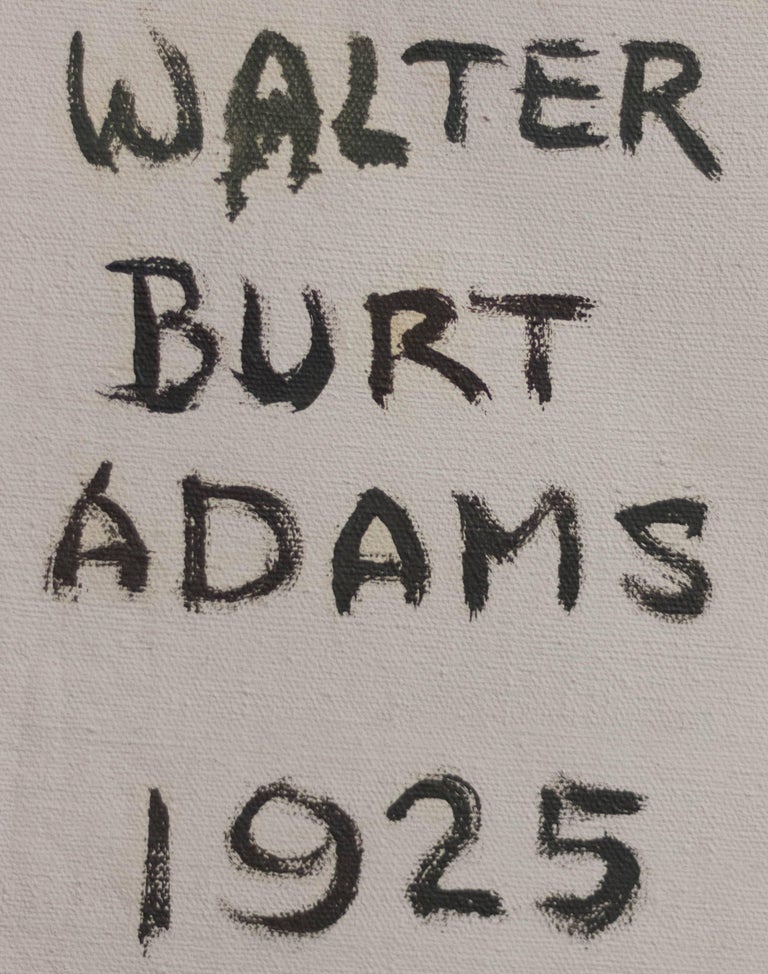 WALTER
BURT
ADAMS
1925